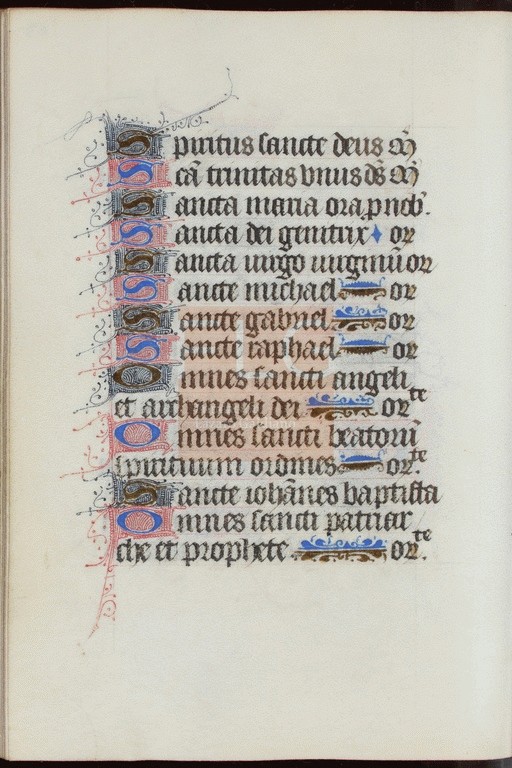 Spiritus sancte deus m̄
Scā trinitas vnus ds̄ m̄
Sancta maria ora p nob.
Sancta dei genitrix or
Sancta uirgo uirginū or
Sancte michael or
Sancte gabriel or
Sancte raphael or
Omnes sancti angeli
et archangeli dei orte
Omnes sancti beatorū
spirituum ordines orte
Sancte ioh̄nes baptista
Omnes sancti patriar
che et prophete orte.